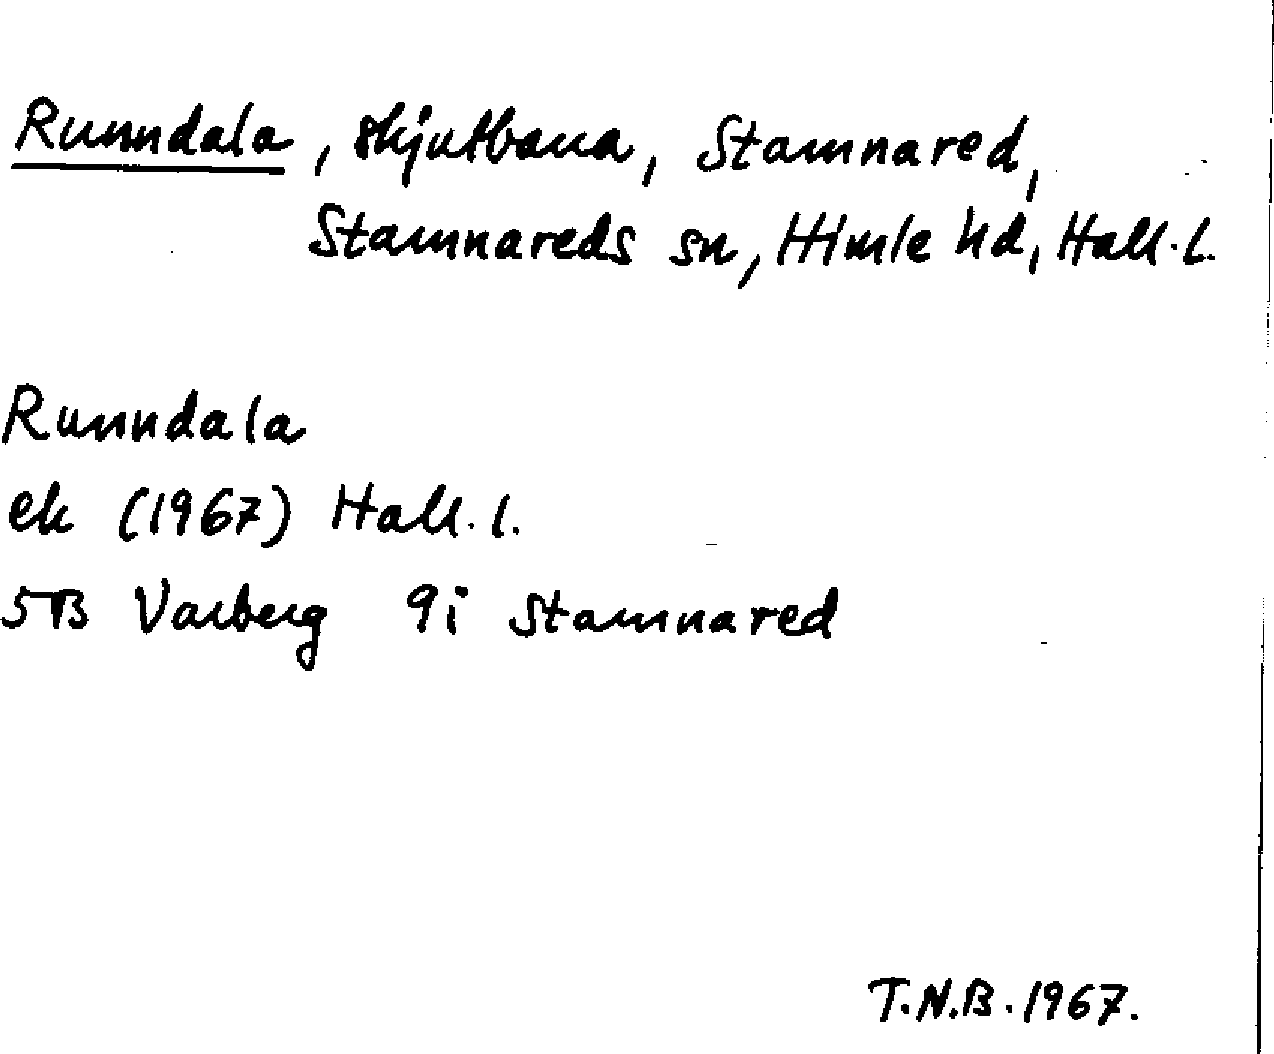 Runndala, skjutbana, Stamnared,
Stamnareds sn, Himle hd, Hall. l.
Runndala
ek (1967) Hall. l.
5B Varberg 9i Stamnared
T.N.B. 1967.